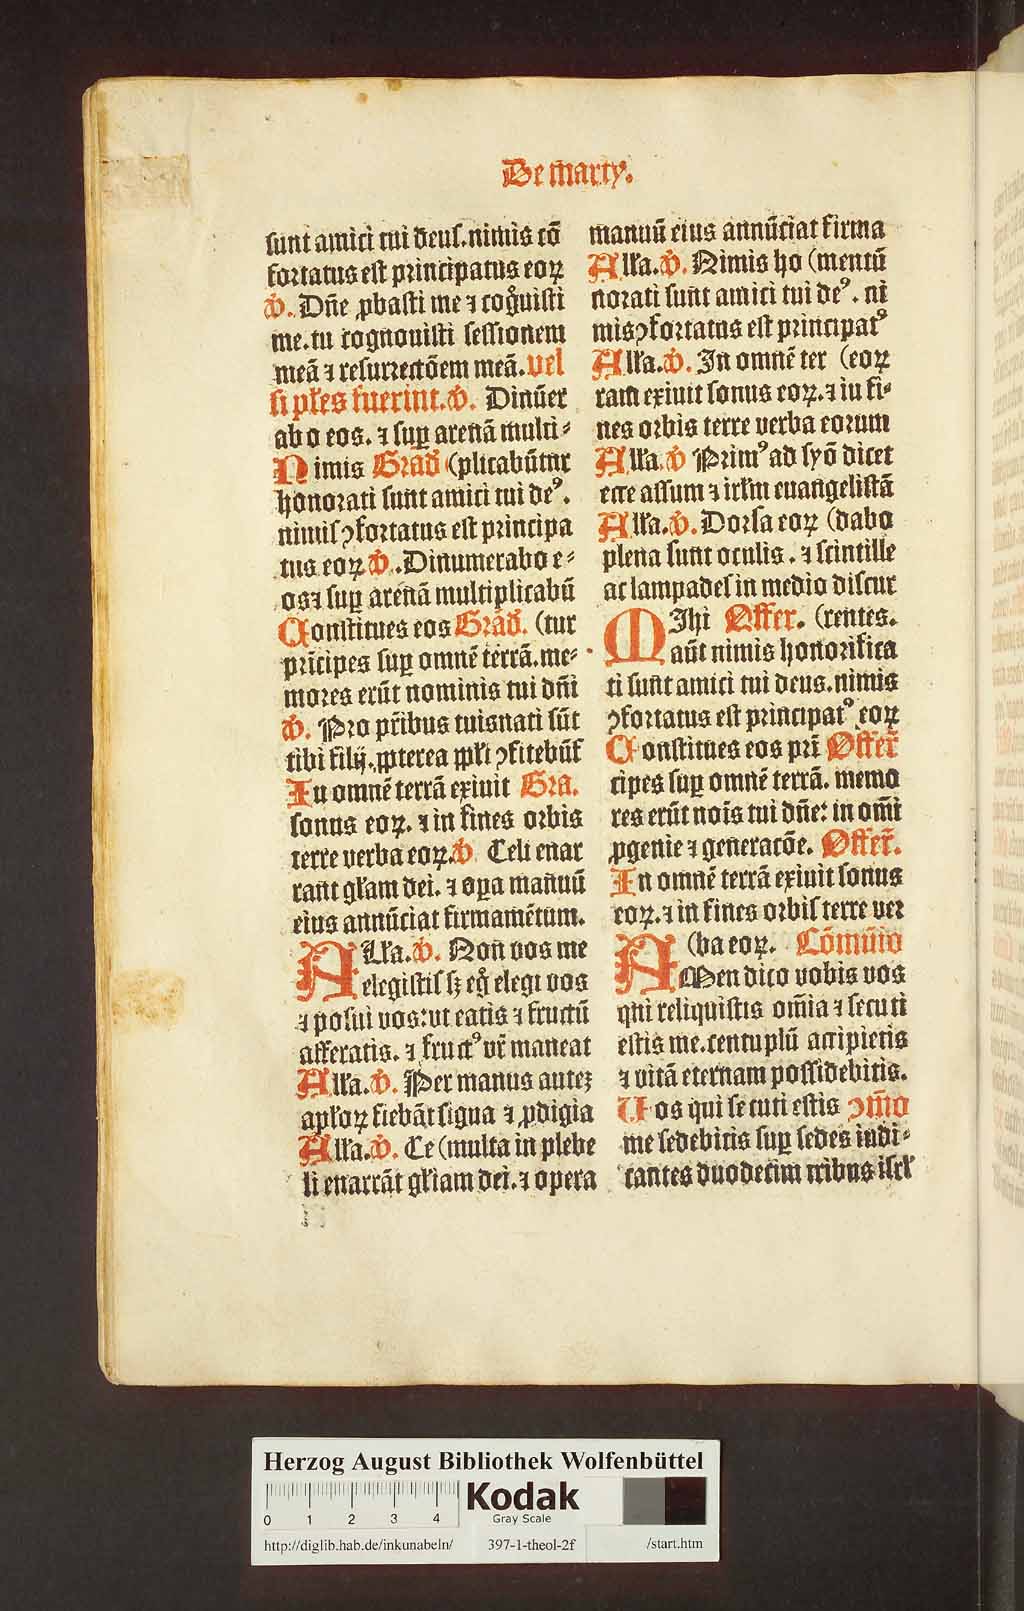 De m̄arty.
sunt amici tui deus. nimis cō
fortatus est principatus eoꝝ
℣. Dn̄e ꝓbasti me ⁊ cog̊uisti
me. tu cognouisti sessionem
meā ⁊ resurrectōem meā. vel
si pl̄es fuerint. ℣. Dinūer
abo eos. ⁊ suꝑ arenā multi-
Nimis Grad̄ (plicabūtur
honorati sunt amici tui deꝰ.
nimis ꝯfortatus est principa
tus eoꝝ ℣. Dinumerabo e-
os ⁊ suꝑ arenā multiplicabū
Constitues eos Grad̄. (tur
prīcipes suꝑ omnē terrā. me-
mores erūt nominis tui dn̄i
℣. Pro pr̄ibus tuis nati sūt
tibi filij. ꝓpterea ppl̄i ꝯfitebūt̄
In omnē terrā exiuit Gra.
sonus eoꝝ. ⁊ in fines orbis
terre uerba eoꝝ. ℣. Celi enar
rant gl̄am dei. ⁊ oꝑa manuū
eius annūciat firmamētum.
All̄a. ℣. Non vos me
elegistis sꝫ eg̊ elegi vos
⁊ posui vos: ut eatis ⁊ fructū
afferatis. ⁊ fructꝰ vr̄ maneat
All̄a. ℣. Per manus auteꝫ
apl̄oꝝ fiebāt signa ⁊ ꝓdigia
All̄a. ℣. Ce (multa in plebe
li enarrāt gl̄iam dei. ⁊ opera
manuū eius annūciat firma
All̄a. ℣. Nimis ho (mentū
norati sunt amici tui deꝰ. ni
mis ꝯfortatus est principatꝰ
All̄a. ℣. In omnē ter (eoꝝ
ram exiuit sonus eoꝝ. ⁊ in fi-
nes orbis terre uerba eorum
All̄a. ℣ Primꝰ ad syō dicet
ecce assum ⁊ irl̄m euangelistā
All̄a. ℣. Dorsa eoꝝ (dabo
plena sunt oculis. ⁊ scintille
ac lampades in medio discur
MIhi Offer. (rentes.
aūt nimis honorifica
ti sunt amici tui deus. nimis
ꝯfortatus est principatꝰ eoꝝ
Constitues eos pri Offer̄
cipes suꝑ omnē terrā. memo
res erūt nois̄ tui dn̄e: in om̄i
ꝓgenie ⁊ generacōe. Offer̄.
In omnē terrā exiuit sonus
eoꝝ. ⁊ in fines orbis terre uer
(ba eoꝝ. Cōmunio
AMen dico vobis vos
qui reliquistis om̄ia ⁊ secuti
estis me. centuplū accipietis
⁊ vitā eternam possidebitis.
Uos qui secuti estis ꝯm̄o
me sedebitis suꝑ sedes iudi-
cantes duodecim tribus isrl̄
Herzog August Bibliothek Wolfenbüttel
0 1 2 3 4
Kodak
Gray Scale
http://diglib.hab.de/inkunabeln/ 397-1-theol-2f /start.htm